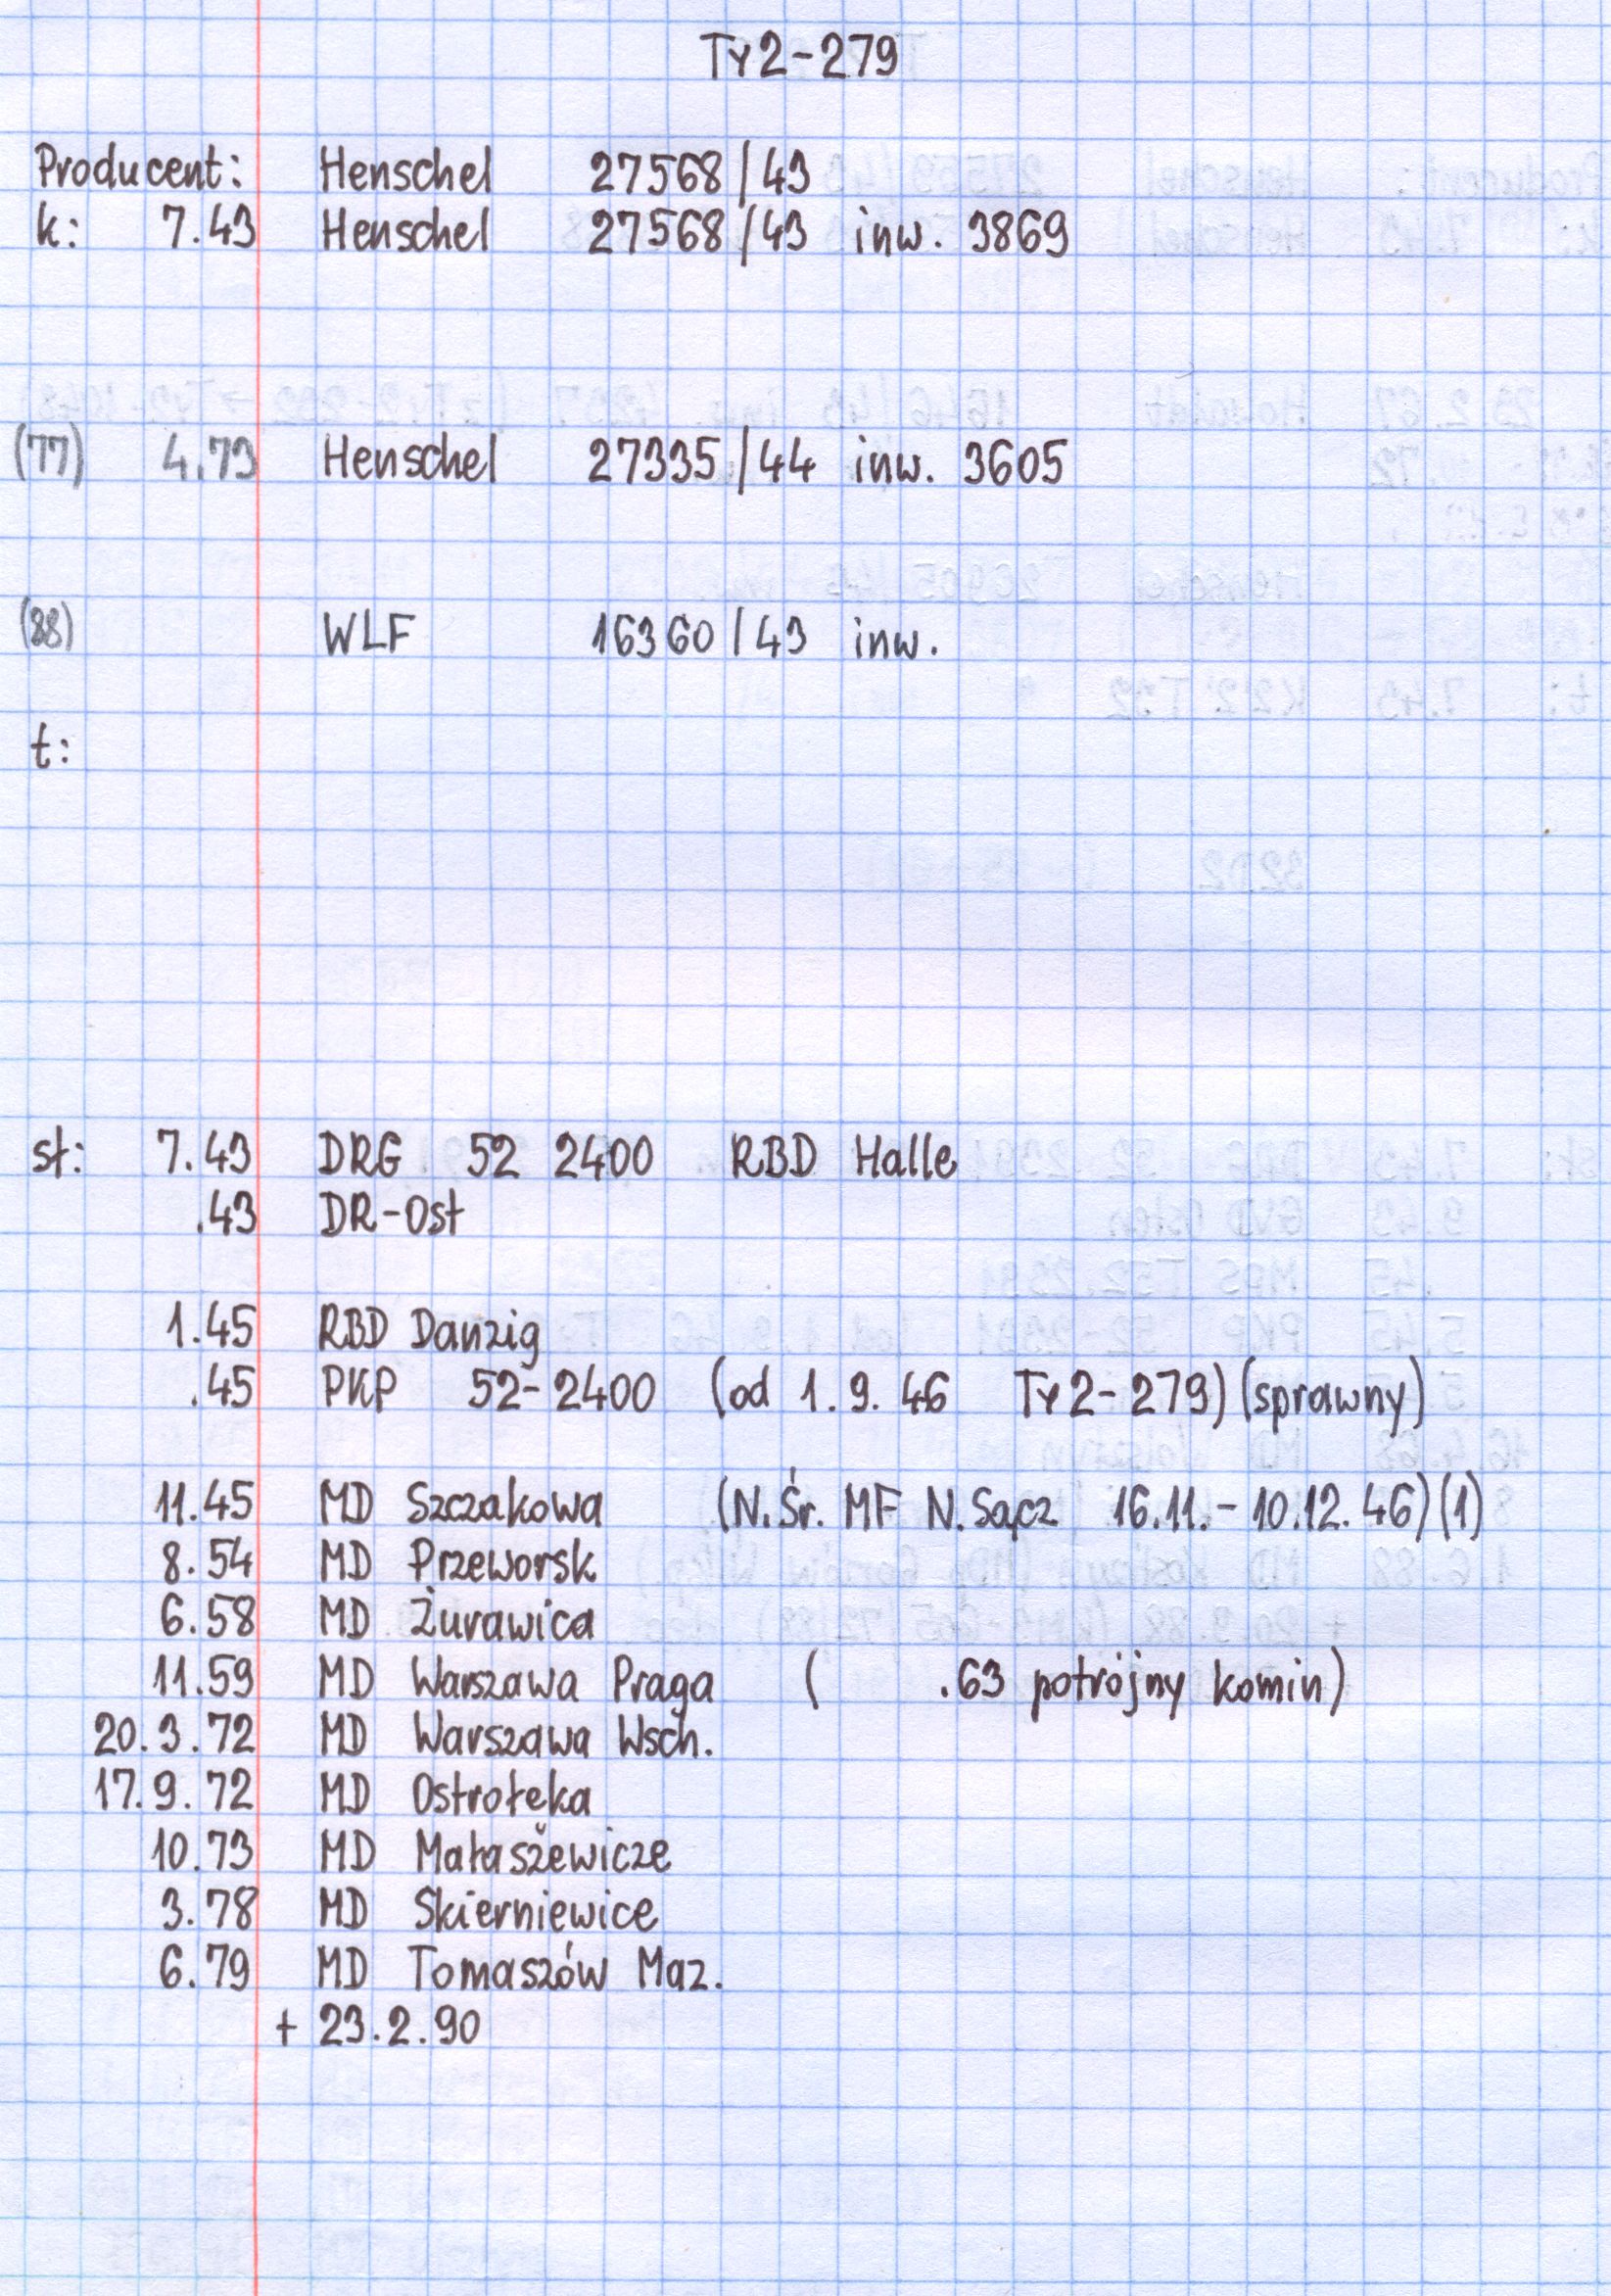 Ty2-279
Producent: Henschel 27568/43
k: 7.43 Henschel 27568/43 inw. 3869
(77) 4.73 Henschel 27335/44 inw. 3605
(88) WLF 16360/43 inw.
t:
st: 7.43 DRG 52 2400 RBD Halle
.43 DR-Ost
1.45 RBD Danzig
.45 PKP 52-2400 (od 1.9.46 Ty2-279) (sprawny)
11.45 MD Szczakowa (N.Śr. MF N.Sącz 16.11.-10.12.46) (1)
8.54 MD Przeworsk
6.58 MD Żurawica
11.59 MD Warszawa Praga ( .63 potrójny komin)
20.3.72 MD Warszawa Wsch.
17.9.72 MD Ostrołęka
10.73 MD Małaszewicze
3.78 MD Skierniewice
6.79 MD Tomaszów Maz.
+ 23.2.90